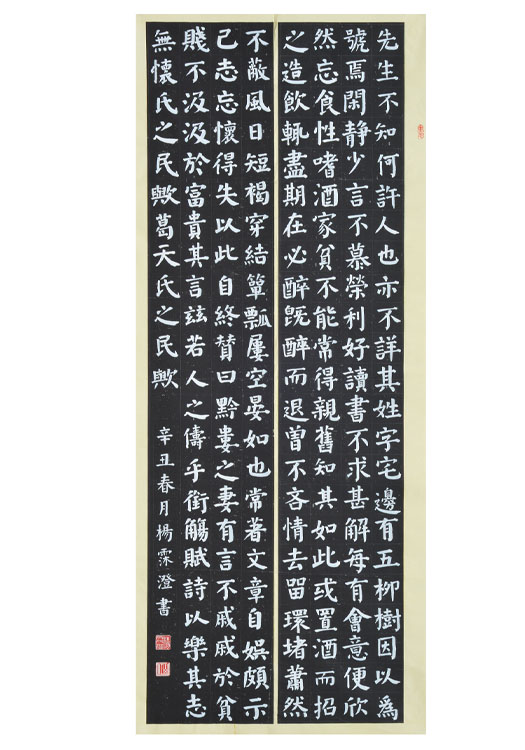 先生不知何許人也亦不詳其姓字宅邊有五柳樹因以爲
號焉閑静少言不慕榮利好讀書不求甚解每有會意便欣
然忘食性嗜酒家貧不能常得親舊知其如此或置酒而招
之造飲輒盡期在必醉既醉而退曾不吝情去留環堵蕭然
不蔽風日短褐穿結簞瓢屢空晏如也常著文章自娛頗示
己志忘懷得失以此自終贊曰黔婁之妻有言不戚戚於貧
賤不汲汲於富貴其言玆若人之儔乎銜觴賦詩以樂其志
無懷氏之民歟葛天氏之民歟
辛丑春月楊霂澄書